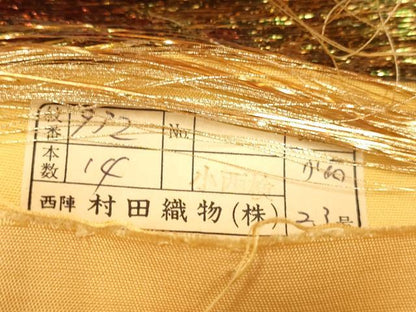 紋番 932 No.
本数 14
西陣 村田織物(株) 23号